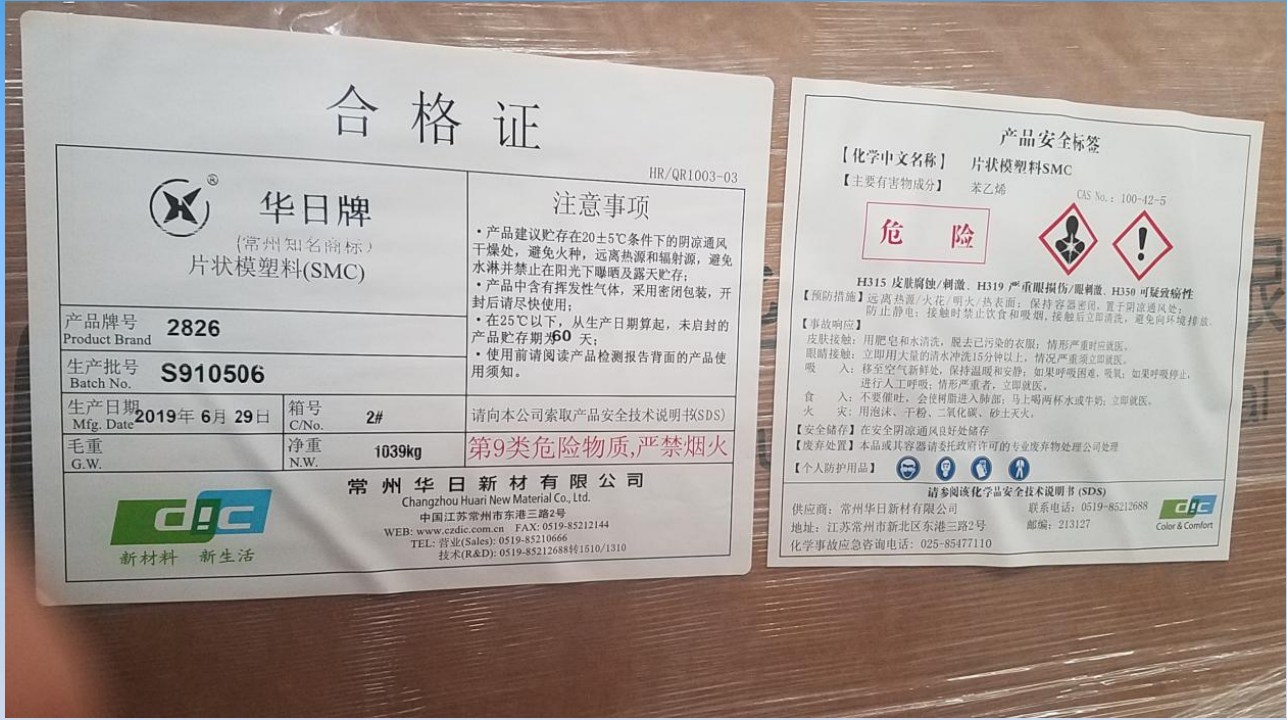 合格证
HR/QR1003-03
®
华日牌
(常州知名商标)
片状模塑料(SMC)
产品牌号 2826
Product Brand
生产批号 S910506
Batch No.
生产日期 2019年 6月 29日
Mfg. Date
箱号 2#
C/No.
毛重
G.W.
净重 1039kg
N.W.
注意事项
·产品建议贮存在20±5℃条件下的阴凉通风
干燥处，避免火种，远离热源和辐射源，避免
水淋并禁止在阳光下曝晒及露天贮存；
·产品中含有挥发性气体，采用密闭包装，开
封后请尽快使用；
·在25℃以下，从生产日期算起，未启封的
产品贮存期为60 天；
·使用前请阅读产品检测报告背面的产品使
用须知。
请向本公司索取产品安全技术说明书(SDS)
第9类危险物质,严禁烟火
dic
新材料 新生活
常州华日新材有限公司
Changzhou Huari New Material Co., Ltd.
中国江苏常州市东港三路2号
WEB: www.czdic.com.cn FAX: 0519-85212144
TEL: 营业(Sales): 0519-85210666
技术(R&D): 0519-85212688转1510/1310
产品安全标签
【化学中文名称】 片状模塑料SMC
【主要有害物成分】 苯乙烯 CAS No.: 100-42-5
危 险
H315 皮肤腐蚀/刺激、H319 严重眼损伤/眼刺激、H350 可疑致癌性
【预防措施】远离热源/火花/明火/热表面；保持容器密闭，置于阴凉通风处；
防止静电；接触时禁止饮食和吸烟，接触后立即清洗，避免向环境排放。
【事故响应】
皮肤接触：用肥皂和水清洗，脱去已污染的衣服；情形严重时应就医。
眼睛接触：立即用大量的清水冲洗15分钟以上，情况严重须立即就医。
吸 入：移至空气新鲜处，保持温暖和安静；如果呼吸困难，吸氧；如果呼吸停止，
进行人工呼吸；情形严重者，立即就医。
食 入：不要催吐，会使树脂进入肺部；马上喝两杯水或牛奶；立即就医。
火 灾：用泡沫、干粉、二氧化碳、砂土灭火。
【安全储存】在安全阴凉通风良好处储存
【废弃处置】本品或其容器请委托政府许可的专业废弃物处理公司处理
【个人防护用品】
请参阅该化学品安全技术说明书 (SDS)
供应商：常州华日新材有限公司 联系电话：0519-85212688
地址：江苏常州市新北区东港三路2号 邮编：213127
化学事故应急咨询电话：025-85477110
dic
Color & Comfort